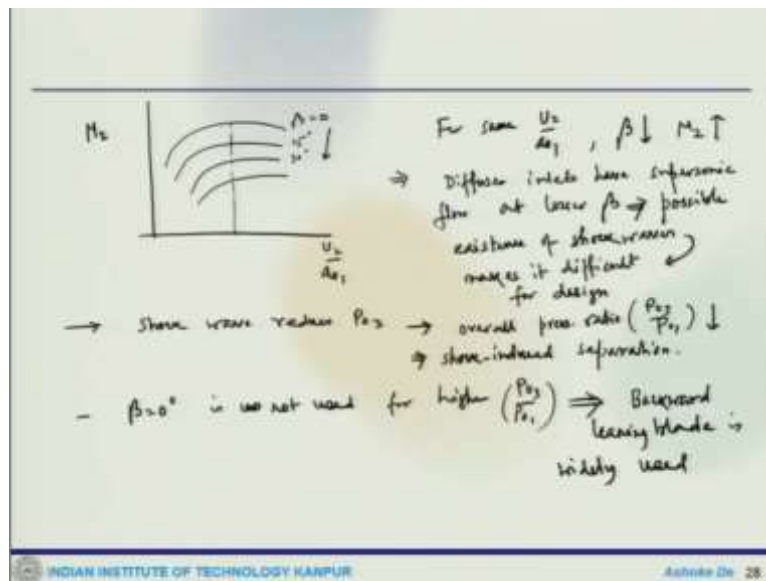 M₂
β=0
15°
30°
U₂
a₀₁
For same U₂/a₀₁, β↓ M₂↑
⇒ Diffuser inlets have supersonic
flow at lower β → possible
existence of shock waves
makes it difficult
for design
→ Shock wave reduce P₀₃ → overall press ratio (P₀₃/P₀₁) ↓
⇒ shock-induced separation.
- β=0° is not used for higher (P₀₃/P₀₁) ⇒ Backward
leaning blade is
widely used
INDIAN INSTITUTE OF TECHNOLOGY KANPUR
Ashoke De 28